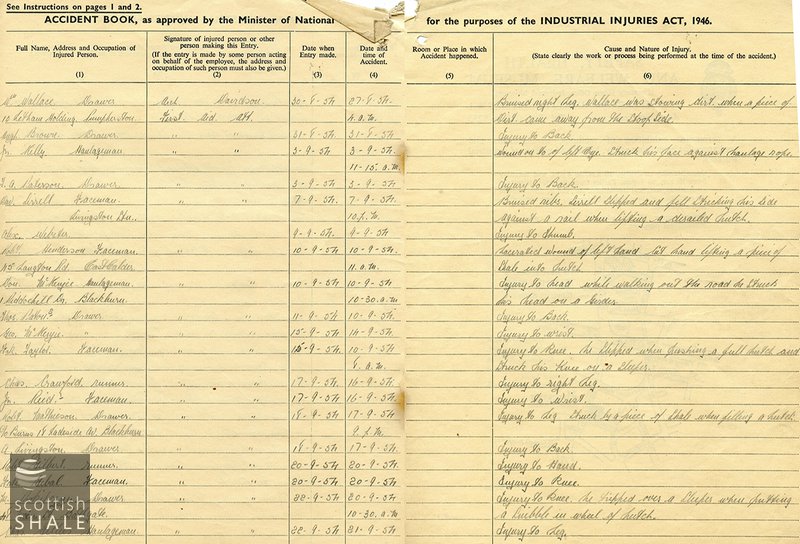 See Instructions on pages 1 and 2.
ACCIDENT BOOK, as approved by the Minister of National for the purposes of the INDUSTRIAL INJURIES ACT, 1946.
Full Name, Address and Occupation of Injured Person. (1)
Signature of injured person or other person making this Entry. (If the entry is made by some person acting on behalf of the employee, the address and occupation of such person must also be given.) (2)
Date when Entry made. (3)
Date and time of Accident. (4)
Room or Place in which Accident happened. (5)
Cause and Nature of Injury. (State clearly the work or process being performed at the time of the accident.) (6)
Wm Wallace Drawer Davidson 30-8-54 27-8-54. Bruised right Leg. Wallace was stowing dirt when a piece of
10 Letham Holding Pumpherston First Aid Att. 4.a.m. dirt came away from the Stoop Side.
Hugh Brown Drawer " " 31-8-54 31-8-54 Injury to Back.
Jn. Kelly Haulageman " " 3-9-54 3-9-54. Wound on to of left Eye. Struck his face against haulage rope.
11-15. a.m
Paterson Drawer " " 3-9-54 3-9-54. Injury to Back.
Faceman " " 7-9-54. 7-9-54. Bruised ribs. Slipped and fell striking his side
Livingston Stn. 10.p.m. against a rail when lifting a derailed hutch.
Alex. Webster 9-9-54 9-9-54 Injury to Thumb.
Robt. Henderson Faceman. " " 10-9-54 10-9-54. Lacerated wound of left hand. Cut hand lifting a piece of
Langton Rd East Calder. 11.a.m. Shale into hutch.
McKenzie Haulageman " " 10-9-54 10-9-54 Injury to head while walking out the road he struck
Blackburn. 10-30.a.m his head on a Girder.
Thos. Drawer " " 11-9-54 10-9-54. Injury to Back.
Geo. McKenzie " " " 15-9-54 14-9-54. Injury to wrist.
Taylor. Faceman. " " 15-9-54. 10-9-54 Injury to Knee. He slipped when pushing a full hutch and
8.a.m. struck his Knee on a sleeper.
Chas. Crawford runner " " 17-9-54 16-9-54. Injury to right leg.
Jn. Reid Faceman. " " 17-9-54 16-9-54. Injury to wrist.
Robt Mathieson Drawer. " " 18-9-54 17-9-54. Injury to Leg struck by a piece of Shale when filling a hutch.
Burns 18 Ladeside Av. Blackburn 9.p.m.
A Livingston Drawer. " " 18-9-54 17-9-54. Injury to Back
runner. " " 20-9-54 20-9-54. Injury to Hand.
Faceman " " 20-9-54. 20-9-54. Injury to Knee.
Drawer " " 22-9-54 20-9-54. Injury to Knee. He tripped over a sleeper when putting
10-30.a.m. a in wheel of hutch.
Haulageman " " 22-9-54. 21-9-54. Injury to Leg.
scottish
SHALE